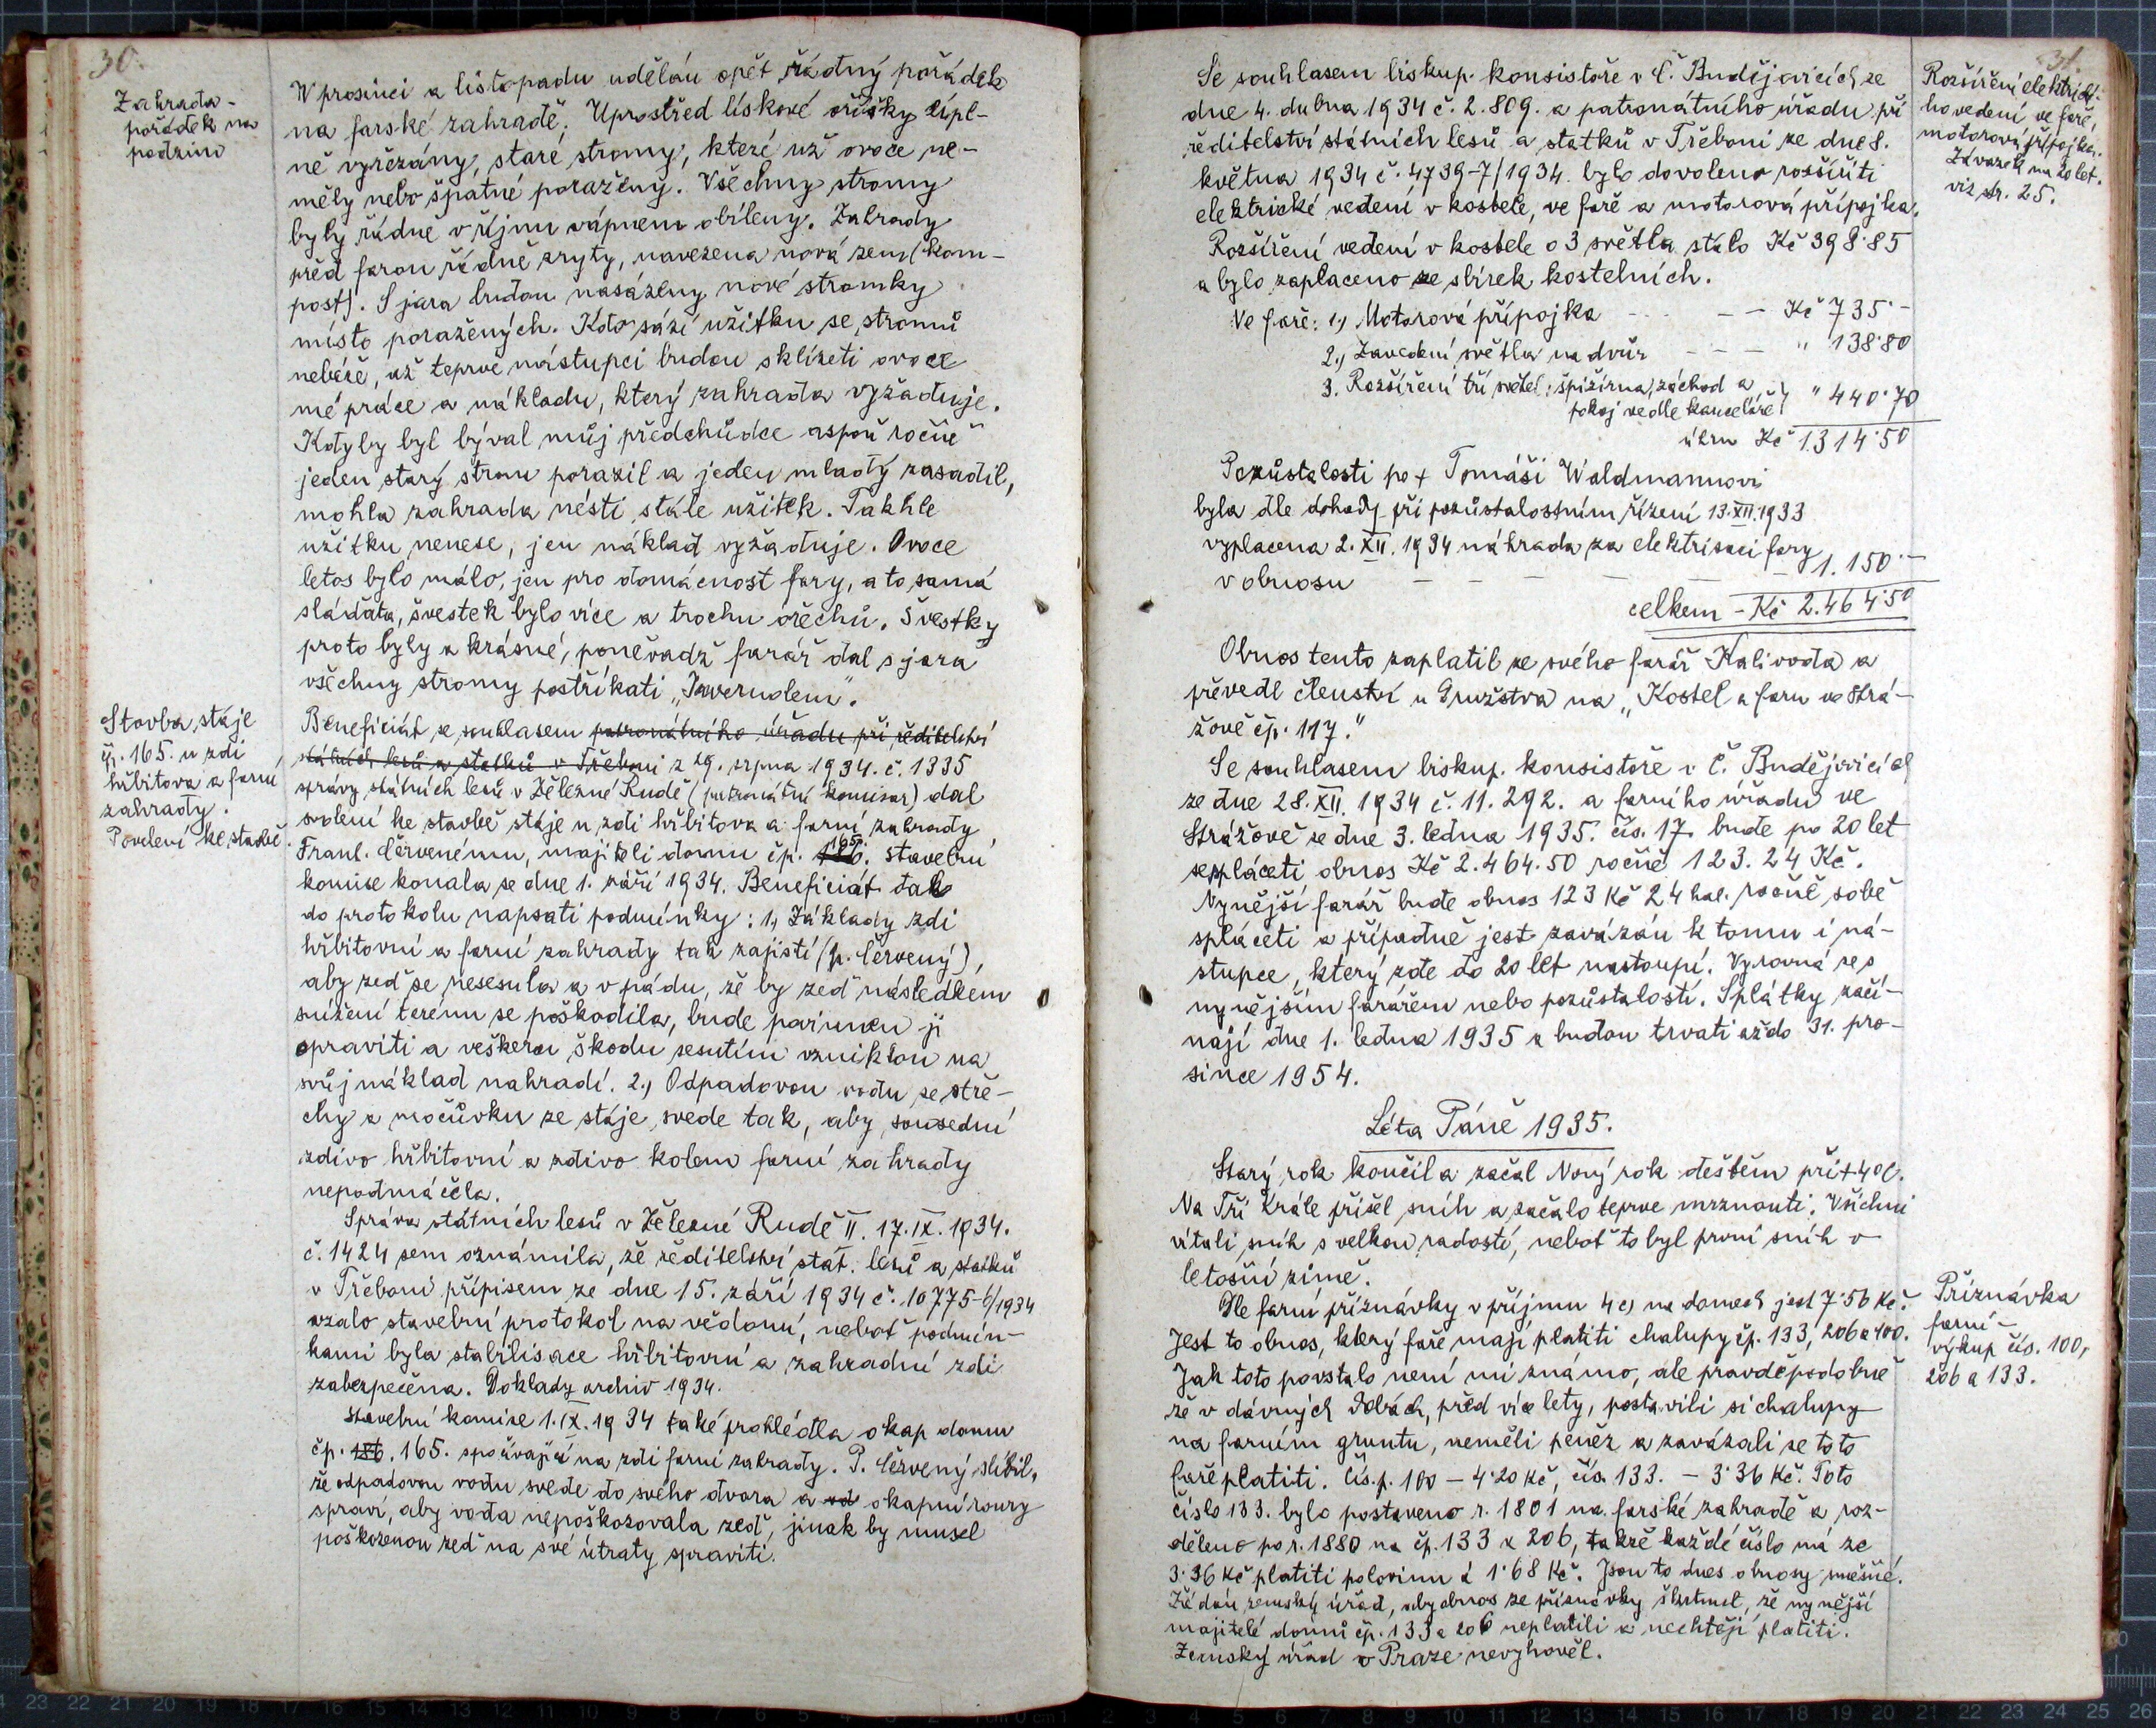 30.
Zahrada -
pořádek na
podzim
W prosinci a listopadu udělán opět řádný pořádek
na farské zahradě. Uprostřed lískové oříšky úpl-
ně vyřezány, staré stromy, které už ovoce ne-
měly nebo špatné poraženy. Všechny stromy
byly řádně v říjnu vápnem obíleny. Zahrady
před farou řádně zryty, navezena nová zem (kom-
post). S jara budou nasázeny nové stromky
místo poražených. Kdo sází užitku se stromů
nebéře, až teprve nástupci budou sklízeti ovoce
mé práce a nákladu, který zahrada vyžaduje.
Kdyby byl býval můj předchůdce aspoň ročně
jeden starý strom porazil a jeden mladý zasadil,
mohla zahrada nésti stále užitek. Takhle
užitku nenese, jen náklad vyžaduje. Ovoce
letos bylo málo, jen pro domácnost fary, a to samá
sláďata, švestek bylo více a trochu ořechů. Švestky
proto byly a krásné, poněvadž farář dal s jara
všechny stromy postříkati „Dovernolem".
Stavba stáje
čp. 165. u zdi
hřbitova a farní
zahrady.
Povolení ke stavbě.
Beneficiát se souhlasem patronátního úřadu při ředitelství
státních lesů a statků v Třeboni z 29. srpna 1934. č. 1335
správy státních lesů v Železné Rudě (patronátní komisar) dal
svolení ke stavbě stáje u zdi hřbitova a farní zahrady
Frant. Červenému, majiteli domu čp. 186. 165. Stavební
komise konala se dne 1. září 1934. Beneficiát dal
do protokolu napsati podmínky: 1., Základy zdi
hřbitovní a farní zahrady tak zajistí (p. Červený),
aby zeď se nesesula a v pádu, že by zeď následkem
snížení terénu se poškodila, bude povinen ji
opraviti a veškerou škodu sesutím vzniklou na
svůj náklad nahradí. 2., Odpadovou vodu se stře-
chy a močůvku ze stáje svede tak, aby sousední
zdivo hřbitovní a zdivo kolem farní zahrady
nepodmáčela.
Správa státních lesů v Železné Rudě II. 17. IX. 1934.
č. 1424 sem oznámila, že ředitelství stát. lesů a statků
v Třeboni přípisem ze dne 15. září 1934 č. 10775-6/1934
vzalo stavební protokol na vědomí, neboť podmín-
kami byla stabilisace hřbitovní a zahradní zdi
zabezpečena. Doklady archiv 1934.
Stavební komise 1. IX. 1934 také prohlédla okap domu
čp. 186. 165. spočívající na zdi farní zahrady. P. Červený slíbil,
že odpadovou vodu svede do svého dvora a od okapní roury
spraví, aby voda nepoškozovala zeď, jinak by musel
poškozenou zeď na své útraty spraviti.
31.
Rozšíření elektrické-
ho vedení ve faře,
motorová přípojka.
Závazek na 20 let.
viz str. 25.
Se souhlasem biskup. konsistoře v Č. Budějovicích ze
dne 4. dubna 1934 č. 2.809. a patronátního úřadu při
ředitelství státních lesů a statků v Třeboni ze dne 8.
května 1934 č. 4739-7/1934. bylo dovoleno rozšířiti
elektrické vedení v kostele, ve faře a motorová přípojka.
Rozšíření vedení v kostele o 3 světla stálo Kč 398·85
a bylo zaplaceno ze sbírek kostelních.
Ve faře: 1., Motorová přípojka - - - - Kč 735·-
2., Zavedení světla na dvůr - - - " 138·80
3. Rozšíření tří světel: špižírna, záchod a
pokoj vedle kanceláře } " 440·70
úhrn Kč 1.314·50
Pozůstalosti po + Tomáši Waldmannovi
byla dle dohody při pozůstalostním řízení 13. XII. 1933
vyplacena 2. XII. 1934 náhrada za elektrisaci fary
v obnosu - - - - - 1.150·-
celkem - Kč 2.464·50
Obnos tento zaplatil ze svého farář Kalivoda a
převedl členství u Družstva na „Kostel a faru ve Strá-
žově čp. 117."
Se souhlasem biskup. konsistoře v Č. Budějovicích
ze dne 28. XII. 1934 č. 11.292. a farního úřadu ve
Strážově ze dne 3. ledna 1935. čís. 17. bude po 20 let
se spláceti obnos Kč 2.464.50 ročně 123.24 Kč.
Nynější farář bude obnos 123 Kč 24 hal. ročně sobě
spláceti a případně jest zavázán k tomu i ná-
stupce, který zde do 20 let nastoupí. Vyrovná se s
nynějším farářem nebo pozůstalostí. Splátky začí-
nají dne 1. ledna 1935 a budou trvati až do 31. pro-
since 1954.
Léta Páně 1935.
Starý rok končil a začal Nový rok deštěm při +4°C.
Na Tři Krále přišel sníh a začalo teprve mrznouti. Všichni
vítali sníh s velkou radostí, neboť to byl první sníh v
letošní zimě.
Přiznávka
farní -
výkup čís. 100,
206 a 133.
Dle farní přiznávky v příjmu 4 c) na domech jest 7·56 Kč.
Jest to obnos, který faře mají platiti chalupy čp. 133, 206 a 100.
Jak toto povstalo není mi známo, ale pravděpodobně
že v dávných dobách, před více lety, postavili si chalupy
na farním gruntu, neměli peněz a zavázali se toto
faře platiti. Čís. p. 100 - 4·20 Kč, čís. 133. - 3·36 Kč. Toto
číslo 133. bylo postaveno r. 1801 na farské zahradě a roz-
děleno po r. 1880 na čp. 133 a 206, takže každé číslo má ze
3·36 Kč platiti polovinu á 1·68 Kč. Jsou to dnes obnosy směšné.
Žádán zemský úřad, aby obnos ze přiznávky škrtnul, že nynější
majitelé domů čp. 133 a 206 neplatili a nechtějí platiti.
Zemský úřad v Praze nevyhověl.